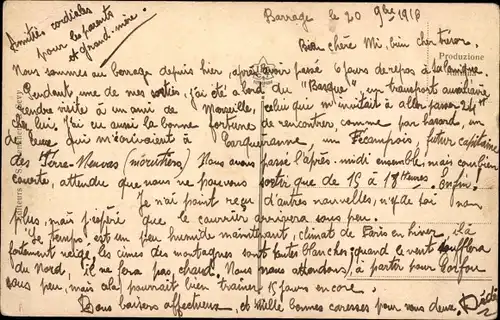 Amitiés cordiales
pour les parents
et grand-mère.
Barrage le 20 9bre 1918
Bien chère Mi, bien cher trésor.
Produzione
Nous sommes au barrage depuis hier, après avoir passé 6 jours de repos à
Pendant une de mes sorties, j'ai été à bord du "Basque" un transport auxiliaire
rendre visite à un ami de Marseille, celui qui m'invitait à aller passer 24h
chez lui. J'ai eu aussi la bonne fortune de rencontrer, comme par hasard, un
de ceux qui m'écrivaient à Carqueiranne, un Fécampois, futur capitaine
des Terre-Neuvas (morutiers) Nous avons passé l'après-midi ensemble, mais combien
courte, attendu que nous ne pouvons sortir que de 15 à 18 Heures. Enfin.
Je n'ai point reçu d'autres nouvelles, n'y a-t-il
plus, mais j'espère que le courrier arrivera sous peu.
Le temps est un peu humide maintenant, climat de Paris en hiver. Il a
fortement neigé, les cimes des montagnes sont toutes blanches; quand le vent soufflera
du Nord, il ne fera pas chaud. Nous nous attendons, à partir pour Corfou
sous peu, mais cela pourrait bien traîner 15 jours encore.
Bons baisers affectueux, et mille bonnes caresses pour vous deux. Dédé